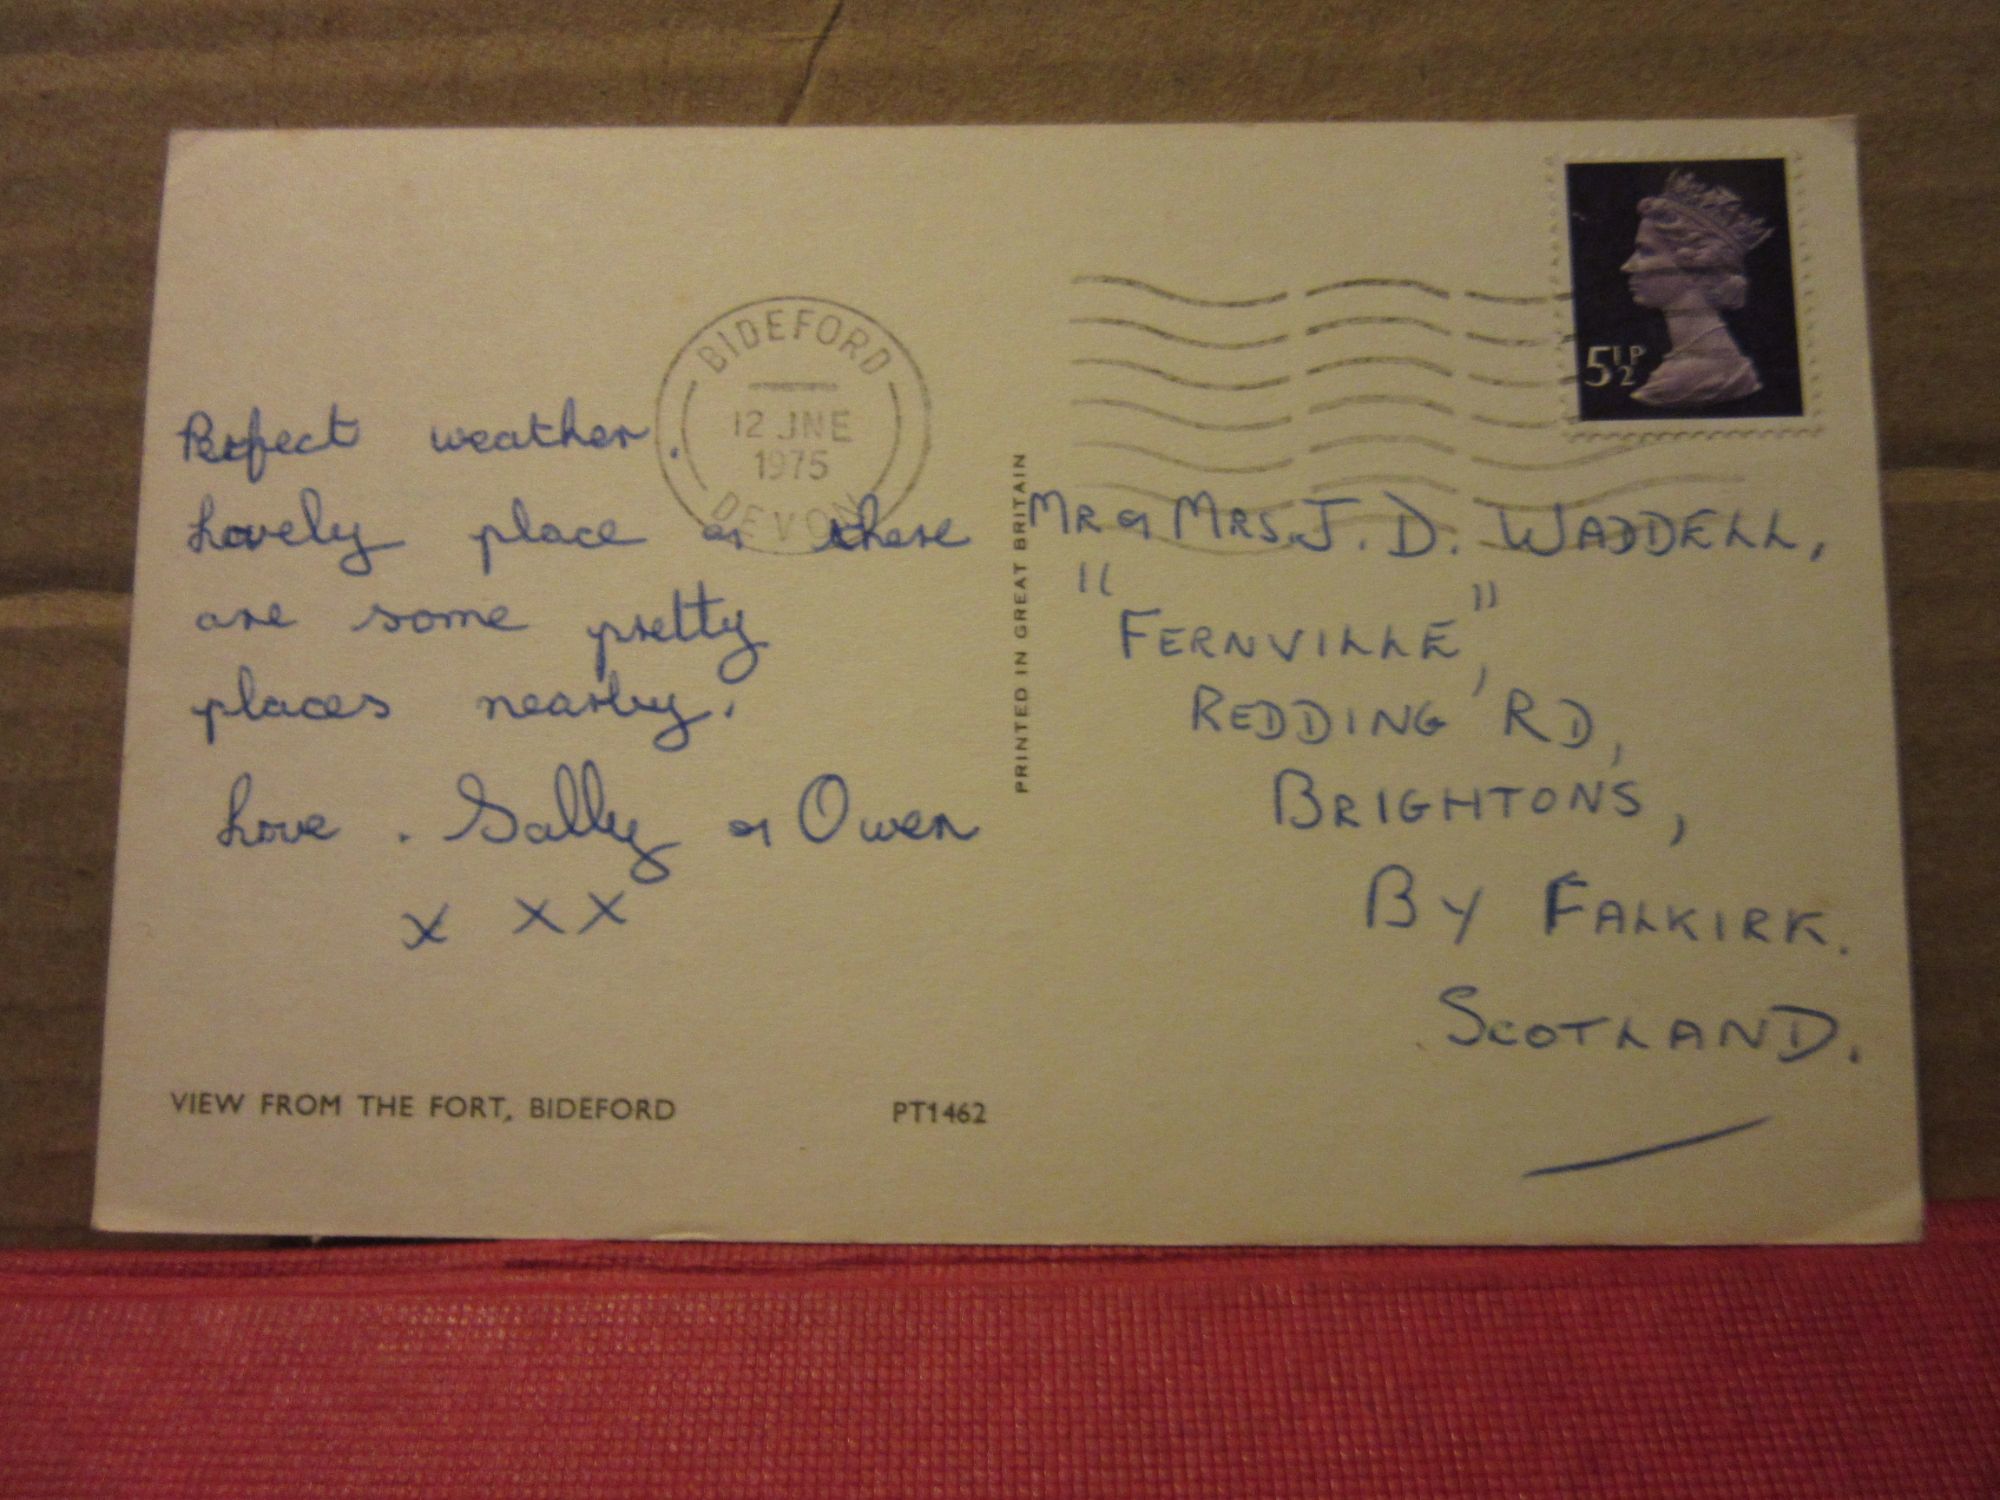 BIDEFORD
12 JNE
1975
DEVON
5½P
Perfect weather.
Lovely place & there
are some pretty
places nearby.
Love. Sally & Owen
x x x
VIEW FROM THE FORT, BIDEFORD
PT1462
PRINTED IN GREAT BRITAIN
MR & MRS. J. D. WADDELL,
"FERNVILLE",
REDDING RD,
BRIGHTONS,
BY FALKIRK.
SCOTLAND.